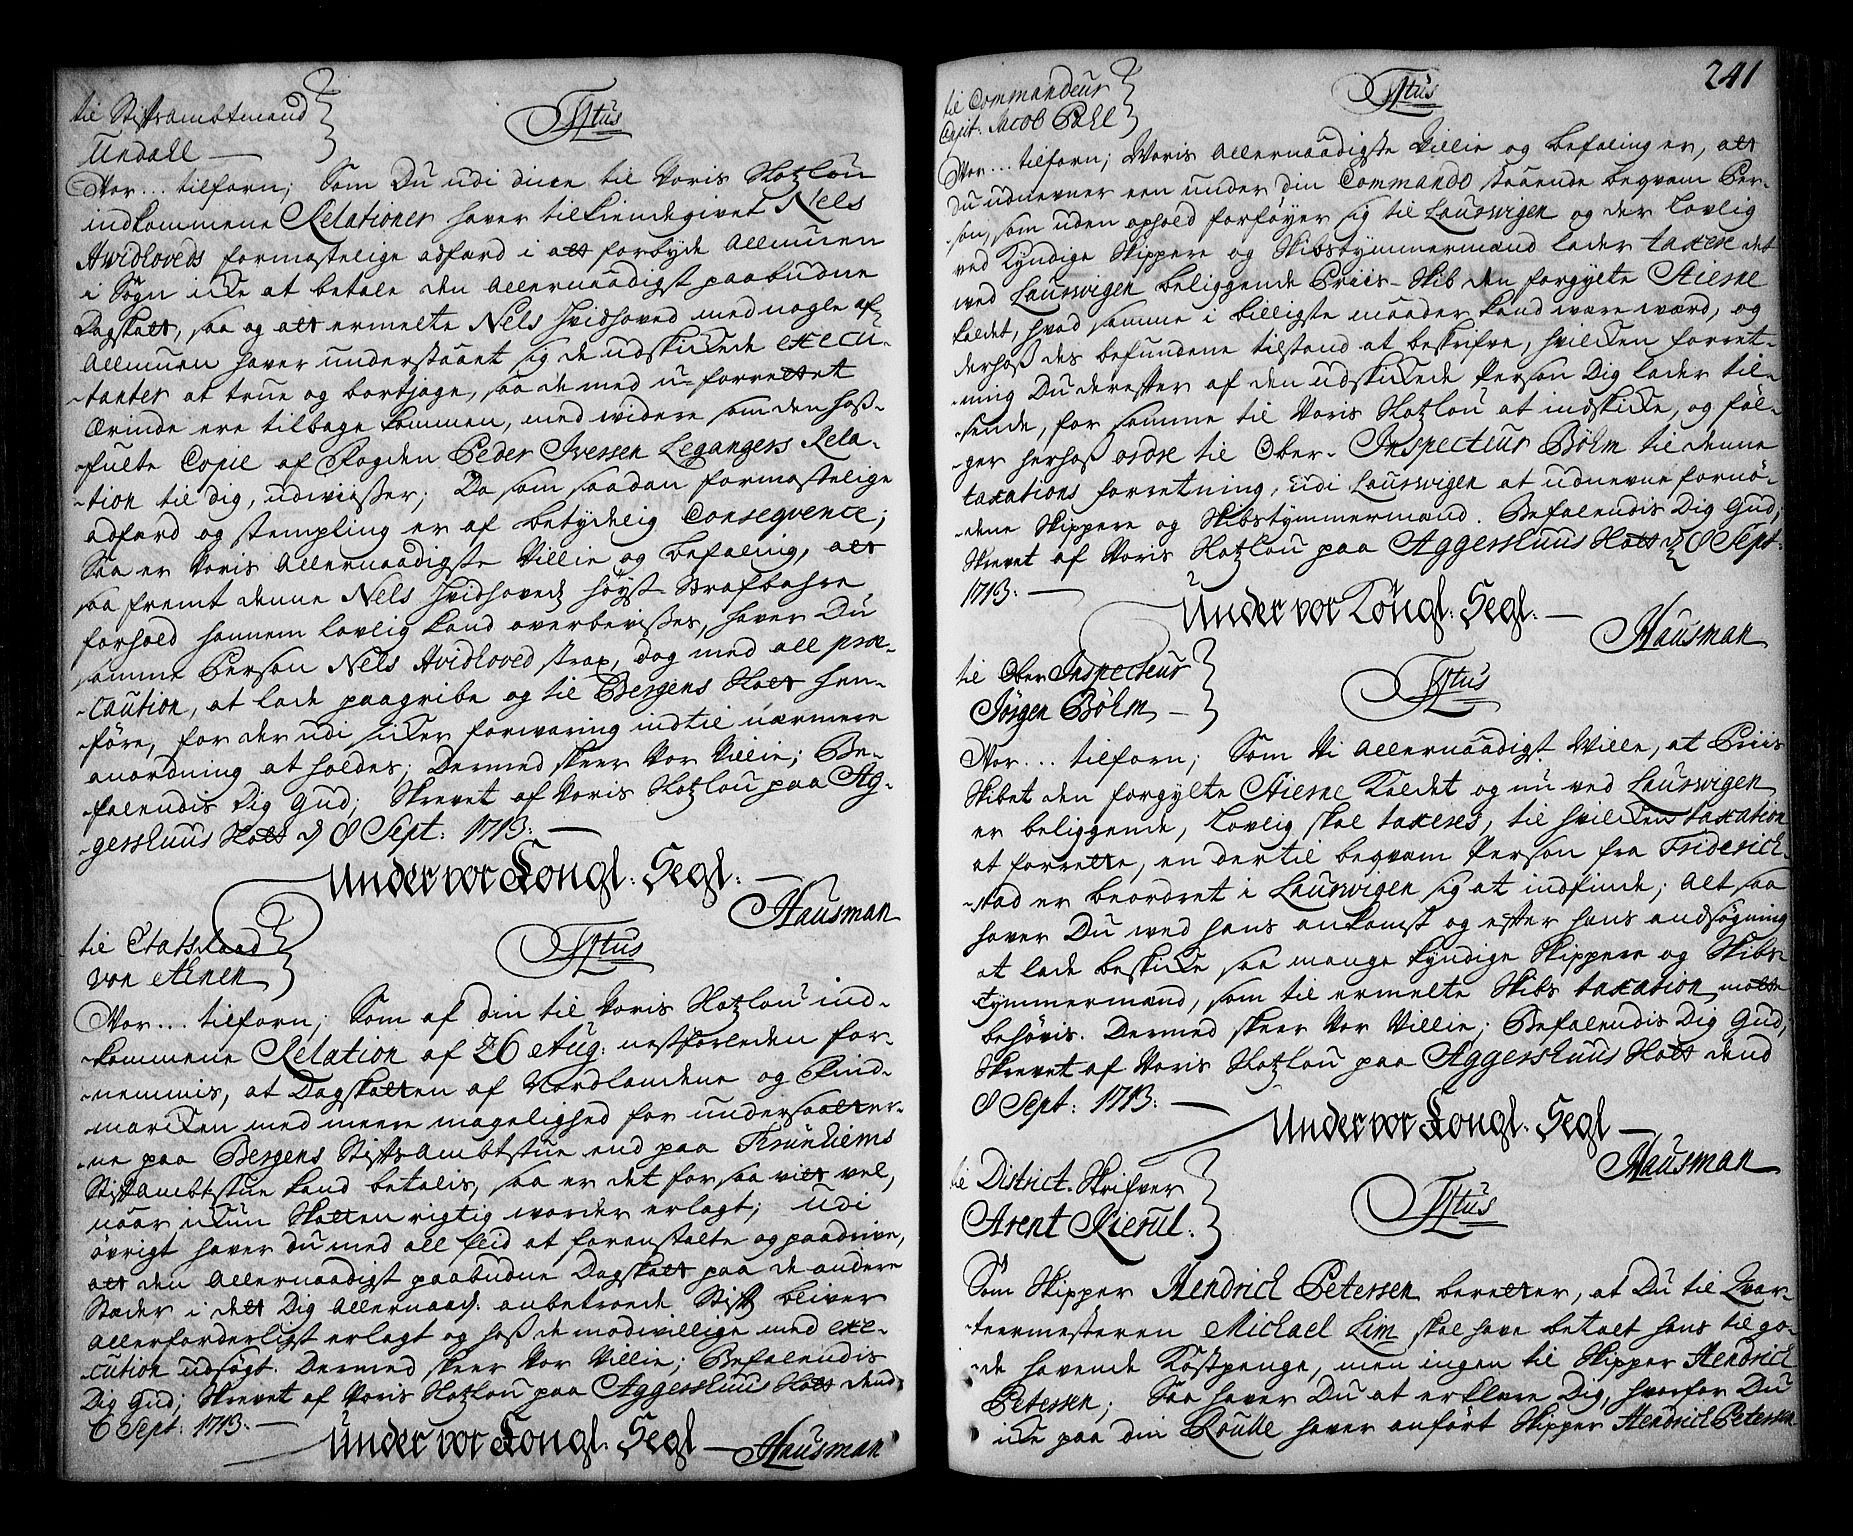 til Stiftsambtmand
Undall —
Ttus
Vor... tilforn; Som Du udi dine til Voris Slotzlou
indkommene Relationer haver tilkiendegivet Nels
Hvidhoveds formastelige adfærd i att forbyde Allmuen
i Sogn icke at betale den Allernaadigst paabudne
Dagskatt, saa og att ermelte Nels Hvidhoved med nogle af
Allmuen haver understaaet sig de udskickede execu-
-tanter at true og bortjage, saa de med u-forrettet
Ærinde ere tilbage kommen, med widere som den hoß-
-fulte Copie af Fogden Peder Iversen Legangers Rela-
-tion til dig, udwiißer; Da som saadan formastelige
adfærd og stempling er af betydelig Conseqvence;
Saa er Voris Allernaadigste Villie og befaling, att
saa fremt denne Nels Hvidhovedz høyst Strafbahre
forhold hannem lovlig kand overbevißes, haver Du
samme Person Nels Hvidhoved strax, dog med all præ-
-caution, at lade paagribe og til Bergens Slott hen-
-føre, for der udi sicker forwaring indtil nærmere
anordning at holdes; Dermed skeer Vor Villie; Be-
falendis Dig Gud; Skrevet af Voris Slotzlou paa Ag-
-gershuus Slott d 8 Sept: 1713. —
Under vor Kongl: Segl: —
Hausman
til Etatsraad
von Ahnen
Ttus
Vor... tilforn; Som af din til Voris Slotzlou ind-
-kommene Relation af 26 Aug: nestforleden for-
-nemmis, at Dagskatten af Nordlandene og Find-
marcken med meere magelighed for undersaatter-
-ne paa Bergens Stiftsambtstue end paa Trundhiems
Stiftambtstue kand betalis, saa er det forsaa vitt vel,
naar ickun Skatten rigtig worder erlagt; udi
øvrigt haver du med all flid at foranstalte og paadrive,
att den Allernaadigst paabudne Dagskatt paa de andere
Stæder i dett Dig Allernaad. anbetroede Stift bliver
allerforderligst erlagt og hoß de modwillige med exe-
cution udsøgt. Dermed skeer Vor Villie; Befalendis
Dig Gud; Skrevet af Voris Slotzlou paa Aggershuus Slott dend
6 Sept: 1713. —
Under vor Kongl. Segl —
Hausman
241
til Commandeur
Capit. Jacob Pahl
Ttus
Vor... tilforn; Woris Allernaadigste Villie og befaling er, att
Du udnevner een under din Commando staaende beqvam Per-
-son, som uden ophold forføyer sig til Laurwigen og der lovlig
ved kyndige Skippere og Skibstymmermænd lader taxere det
wed Laurwigen beliggende Priis-Skib den forgylte Stierne
kaldet, hvad samme i billigste maader kand være wærd, og
derhoß des befundene tilstand at beskrifve, hvilcken forret-
-ning Du derefter af den udskickede Person Dig lader til-
-sende, for samme til Voris Slotzlou at indskicke, og føl-
-ger herhoß ordre til Ober-Inspecteur Bøhm til denne
taxations forretning, udi Laurwigen at udnevne fornø-
-dene Skippere og Skibstymmermænd. Befalendis Dig Gud;
Skrevet af Voris Slotzlou paa Aggershuus Slott d 8 Sept:
1713. —
Under vor Kongl: Segl. —
Hausman
til Ober Inspecteur
Jørgen Bøhm —
Ttus
Vor... tilforn; Som Vi Allernaadigst Wille, at Priis
Skibet den forgylte Stierne kaldet og nu ved Laurwigen
er beliggende, lovlig skal taxeres, til hvilcken taxation
at forrette, en dertil beqvam Person fra Friderich-
-stad er beordret i Laurwigen sig at indfinde; Alt saa
haver Du wed hans ankomst og efter hans andsøgning
at lade beskicke saa mange kyndige Skippere og Skibs-
Tymmermænd, som til ermelte Skibs taxation motte
behøvis. Dermed skeer Vor Villie; Befalendis Dig Gud;
Skrevet af Voris Slotzlou paa Aggershuus Slott dend
8 Sept: 1713. —
Under vor Kongl. Segl —
Hausman
til District-Skrifver
Arent Kierul.
Ttus
Som Skipper Hendrich Petersen beretter, at Du til Qvar-
-teermesteren Michael Lim skal have betalt hans til go-
-de havende Kostpenge, men ingen til Skipper Hendrich
Petersen; Saa haver Du at erklære Dig, hvorfor Du
icke paa din Roulle haver anført Skipper Hendrich Petersen